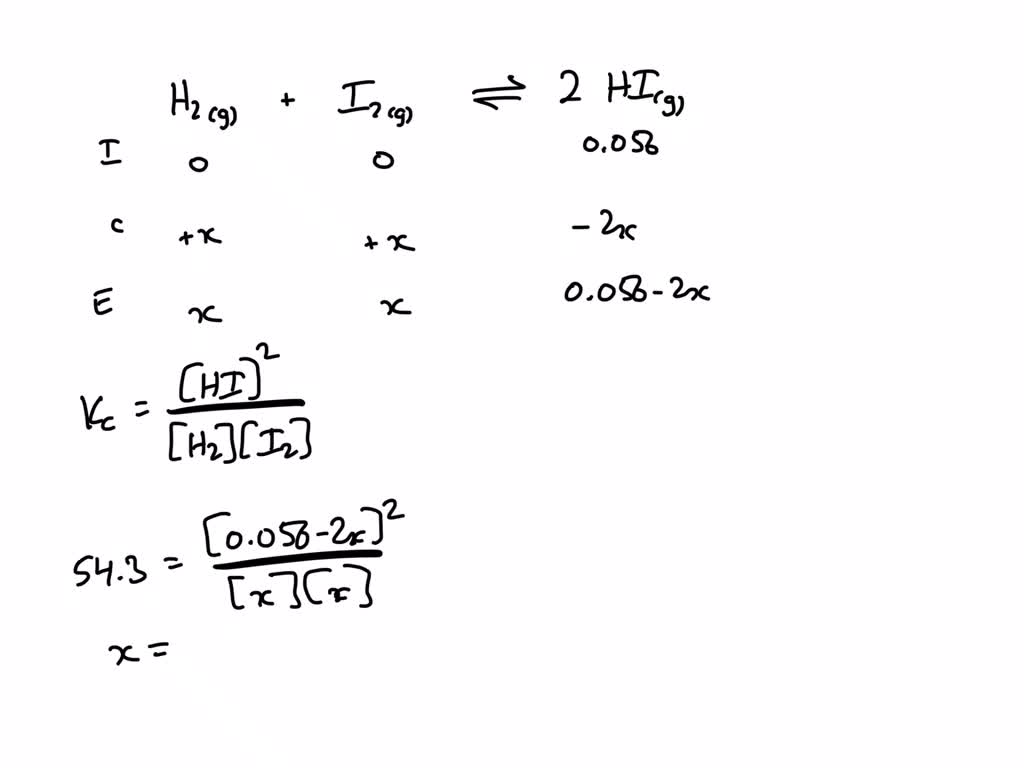 H₂(g) + I₂(g) ⇌ 2 HI(g)
I 0 0 0.056
C +x +x -2x
E x x 0.056-2x
Kc = [HI]² / [H₂][I₂]
54.3 = [0.056-2x]² / [x][x]
x =